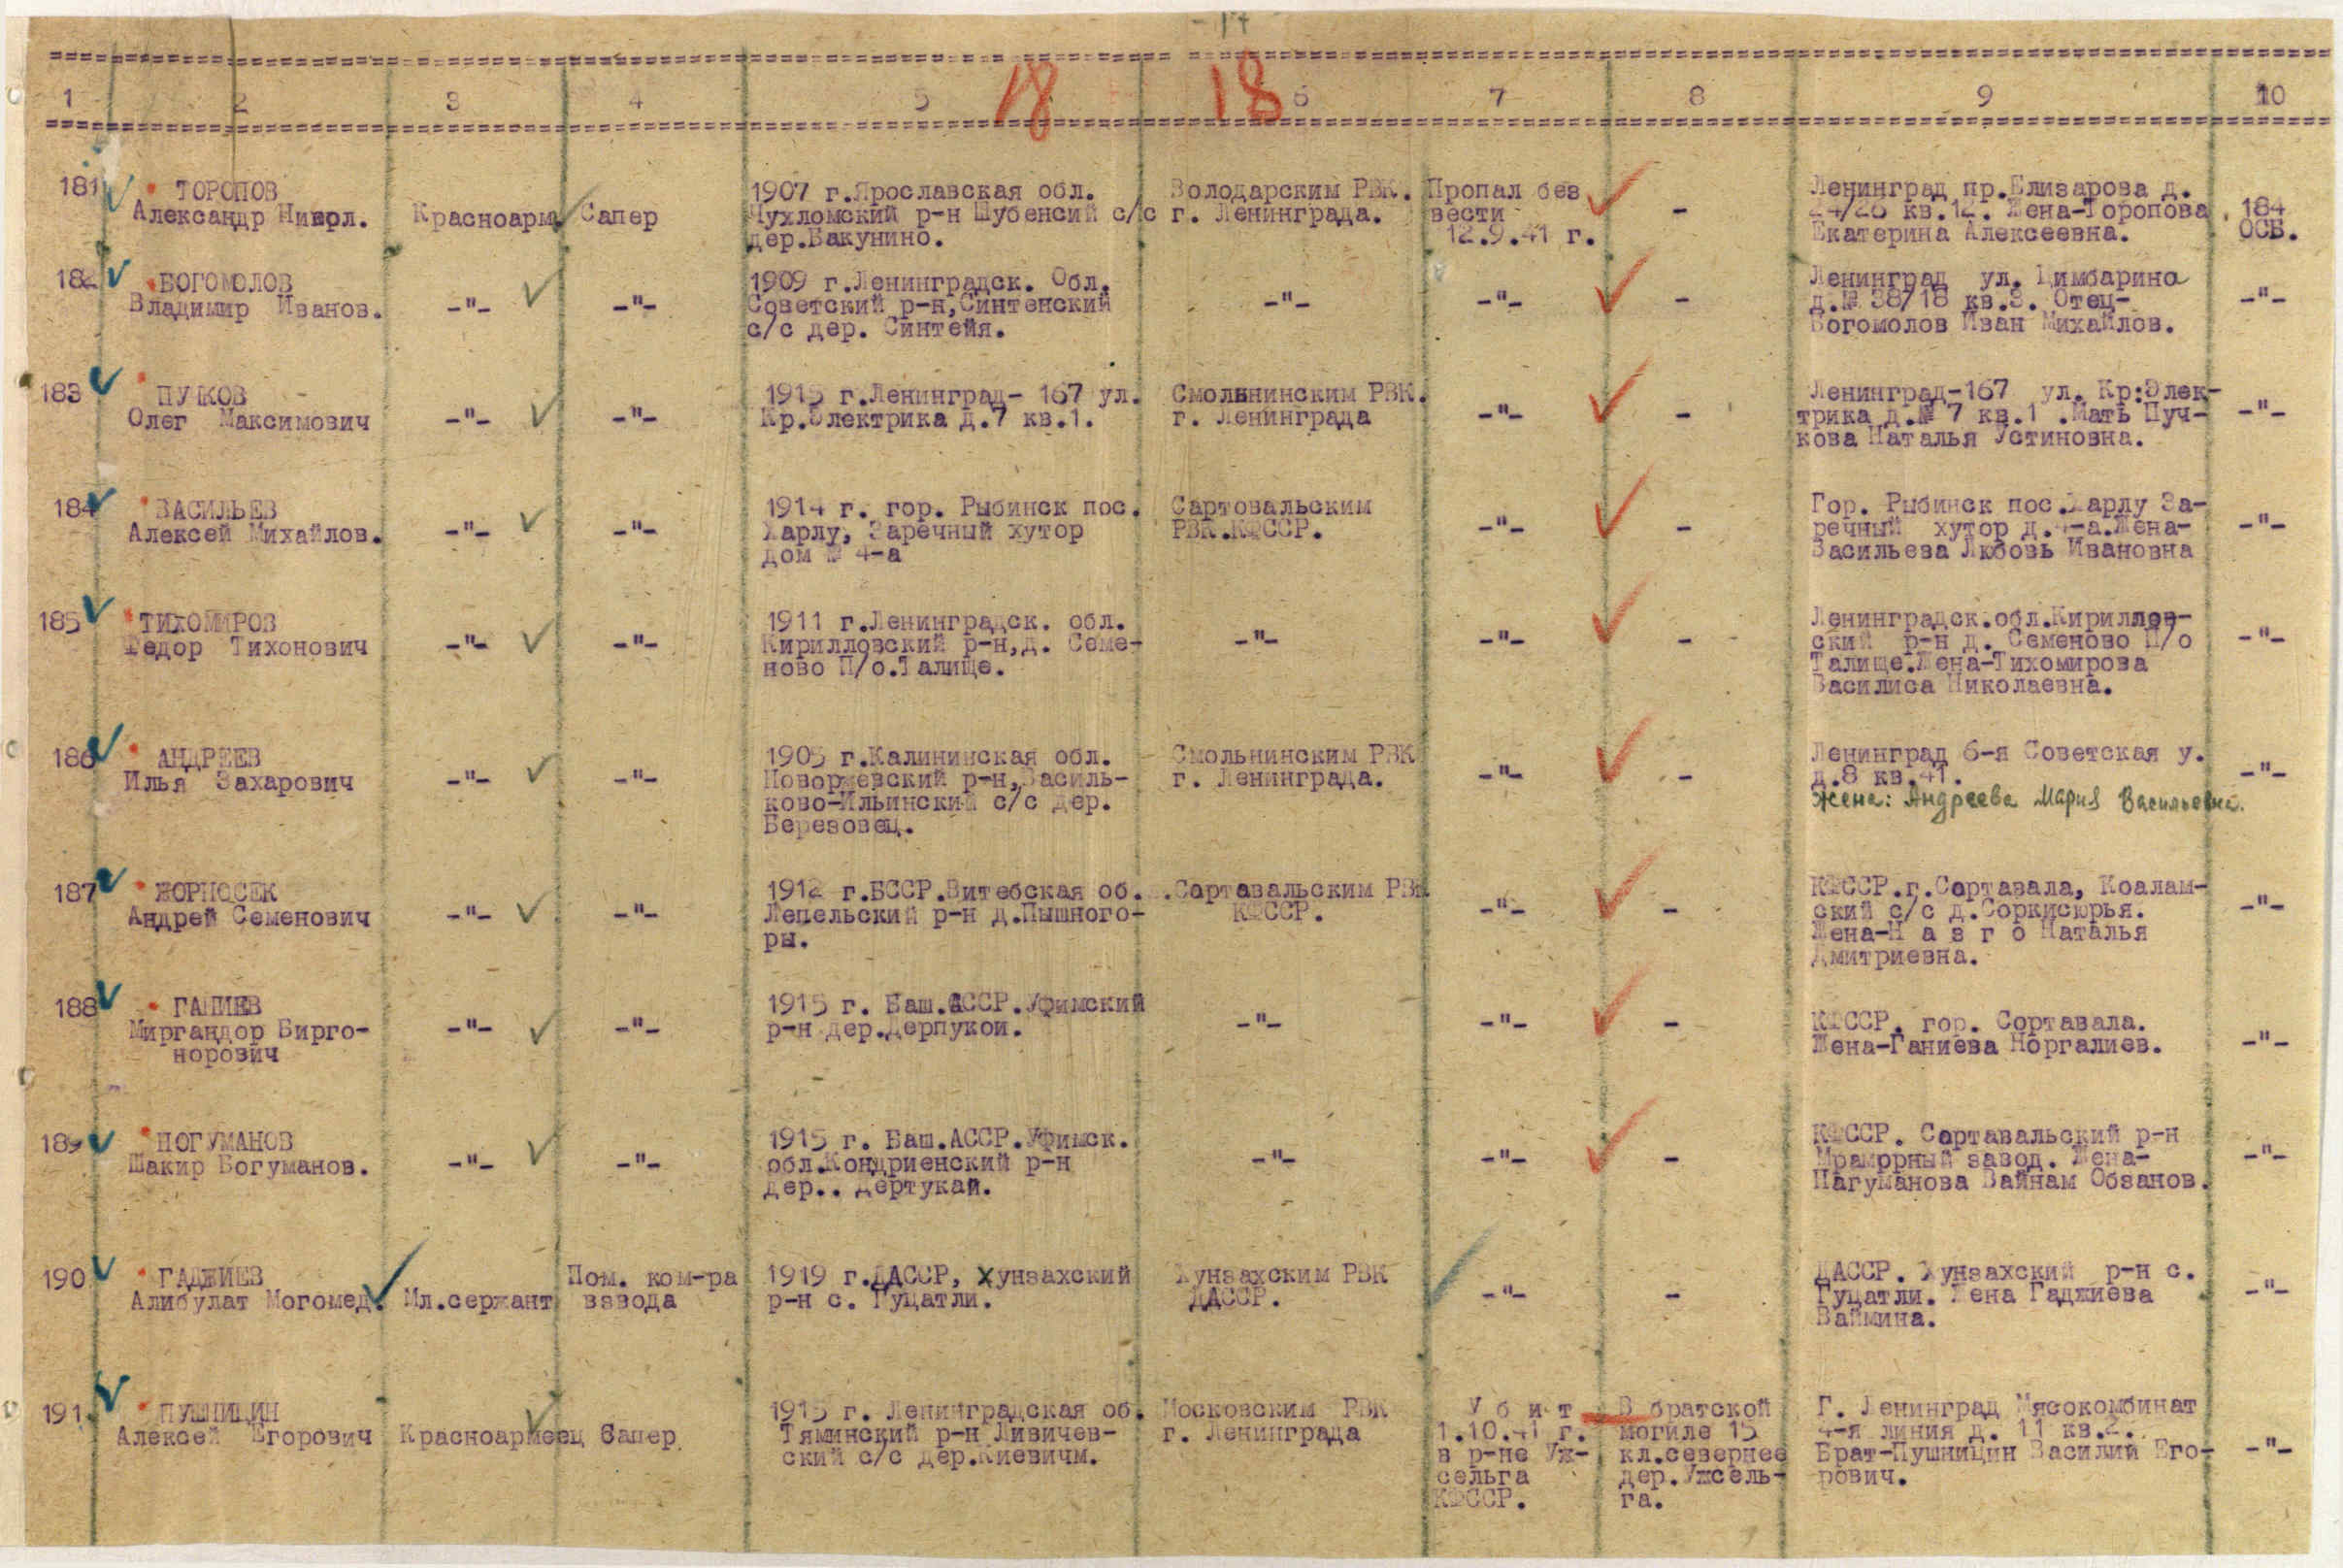 - 17
18 18
1 2 3 4 5 6 7 8 9 10
181 ТОРОПОВ
Александр Никол.
Красноарм.
Сапер
1907 г.Ярославская обл.
Чухломский р-н Шубенсий с/с
дер.Бакунино.
Володарским РВК.
г. Ленинграда.
Пропал без
вести
12.9.41 г.
-
Ленинград пр.Елизарова д.
24/26 кв.12. Жена-Торопова
Екатерина Алексеевна.
184
ОСБ.
182 БОГОМОЛОВ
Владимир Иванов.
-"-
-"-
1909 г.Ленинградск. Обл.
Советский р-н,Синтенский
с/с дер. Синтейя.
-"-
-"-
-
Ленинград ул. Цимбарина
д.№ 38/18 кв.3. Отец-
Богомолов Иван Михайлов.
-"-
183 ПУЧКОВ
Олег Максимович
-"-
-"-
1915 г.Ленинград- 167 ул.
Кр.Электрика д.7 кв.1.
Смольнинским РВК.
г. Ленинграда
-"-
-
Ленинград-167 ул. Кр:Элек-
трика д.№ 7 кв.1 .Мать Пуч-
кова Наталья Устиновна.
-"-
184 ВАСИЛЬЕВ
Алексей Михайлов.
-"-
-"-
1914 г. гор. Рыбинск пос.
Харлу, Заречный хутор
дом № 4-а
Сартовальским
РВК.КФССР.
-"-
-
Гор. Рыбинск пос.Харлу За-
речный хутор д.4-а.Жена-
Васильева Любовь Ивановна
-"-
185 ТИХОМИРОВ
Федор Тихонович
-"-
-"-
1911 г.Ленинградск. обл.
Кирилловский р-н,д. Семе-
ново П/о.Талище.
-"-
-"-
-
Ленинградск.обл.Кириллов-
ский р-н д. Семеново П/о
Талище.Жена-Тихомирова
Василиса Николаевна.
-"-
186 АНДРЕЕВ
Илья Захарович
-"-
-"-
1905 г.Калининская обл.
Новоржевский р-н,Василь-
ково-Ильинский с/с дер.
Березовец.
Смольнинским РВК
г. Ленинграда.
-"-
-
Ленинград 6-я Советская у.
д.8 кв.41.
Жена: Андреева Мария Васильевна.
-"-
187 ЖОРНОСЕК
Андрей Семенович
-"-
-"-
1912 г.БССР.Витебская об.
Лепельский р-н д.Пышного-
ры.
.Сортавальским РВК
КФССР.
-"-
-
КФССР.г.Сортавала, Коалам-
ский с/с д.Соркисюрья.
Жена-Н а з г о Наталья
Дмитриевна.
-"-
188 ГАНИЕВ
Миргандор Бирго-
норович
-"-
-"-
1915 г. Баш.АССР.Уфимский
р-н дер.Дерпукои.
-"-
-"-
-
КФССР. гор. Сортавала.
Жена-Ганиева Норгалиев.
-"-
189 НОГУМАНОВ
Шакир Богуманов.
-"-
-"-
1915 г. Баш.АССР.Уфимск.
обл.Кондриенский р-н
дер.. Дертукай.
-"-
-"-
-
КФССР. Сортавальский р-н
Мраморный завод. Жена-
Нагуманова Вайнам Обзанов.
-"-
190 ГАДЖИЕВ
Алибулат Могомед.
Мл.сержант
Пом. ком-ра
взвода
1919 г.ДАССР, Хунзахский
р-н с. Гуцатли.
Хунзахским РВК
ДАССР.
-"-
-
ДАССР. Хунзахский р-н с.
Гуцатли. Жена Гаджиева
Ваймина.
-"-
191. ПУШНИЦИН
Алексей Егорович
Красноармеец
Сапер
1915 г. Ленинградская об.
Тяминский р-н Ливичев-
ский с/с дер.Киевичм.
Московским РВК
г. Ленинграда
У б и т
1.10.41 г.
в р-не Уж-
сельга
КФССР.
В братской
могиле 15
кл.севернее
дер.Ужсель-
га.
Г. Ленинград Мясокомбинат
4-я линия д. 11 кв.2.
Брат-Пушницин Василий Его-
рович.
-"-